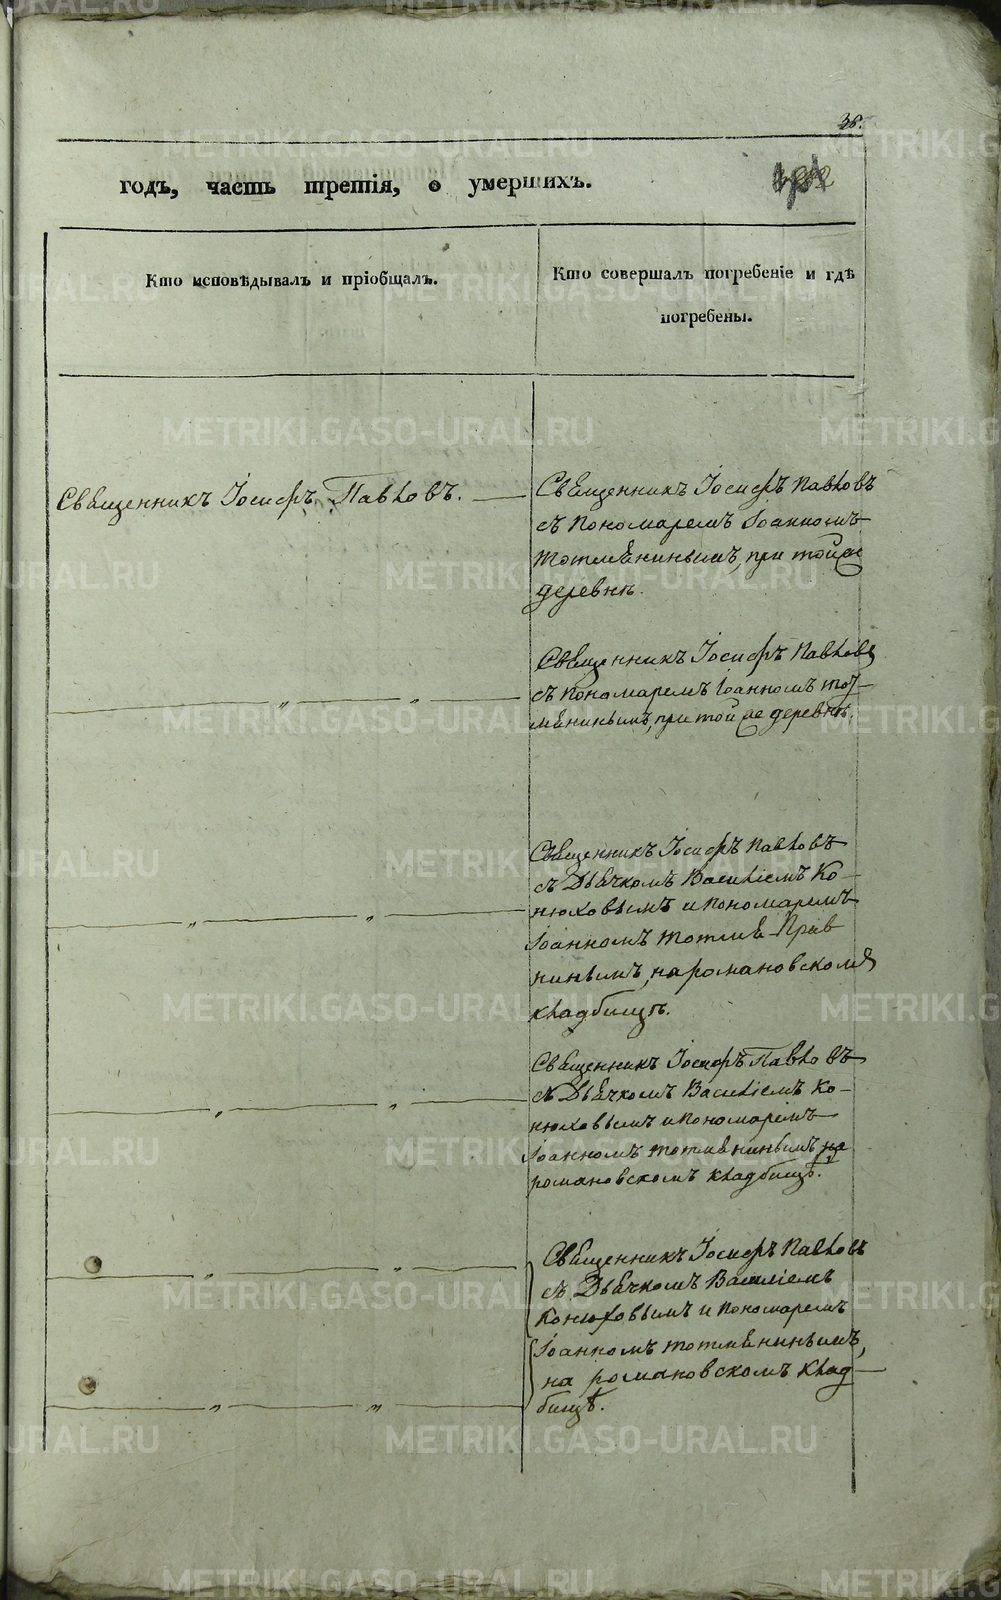 38.
годъ, часть третія, о умершихъ.
Кто исповѣдывалъ и пріобщалъ.
Кто совершалъ погребеніе и гдѣ
погребены.
Священникъ Іосифъ Павловъ.
Священникъ Іосифъ Павловъ
съ Пономаремъ Іоанномъ
Тотмѣнинымъ, при той же
деревнѣ.
Священникъ Іосифъ Павловъ
съ Пономаремъ Іоанномъ Тот-
мѣнинымъ, при той же деревнѣ.
„ „
Священникъ Іосифъ Павловъ
съ Дьячкомъ Василіемъ Ко-
нюховымъ и Пономаремъ
Іоанномъ Тотмѣ
нинымъ, на романовскомъ
кладбищѣ.
„ „
Священникъ Іосифъ Павловъ
съ Дьячкомъ Василіемъ Ко-
нюховымъ и Пономаремъ
Іоанномъ Тотмѣнинымъ на
романовскомъ кладбищѣ.
„ „
Священникъ Іосифъ Павловъ
съ Дьячкомъ Василіемъ
Конюховымъ и Пономаремъ
Іоанномъ Тотмѣнинымъ,
на романовскомъ клад-
бищѣ.
„ „
„ „
METRIKI.GASO-URAL.RU